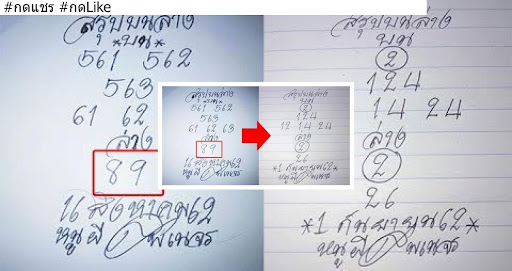 #กดแชร #กดLike
สรุปบนล่าง
*บน*
561 562
563
61 62
ล่าง
89
16 สิงหาคม62
หนูผี พเนจร
สรุปบนล่าง
บน
561 562
563
61 62 63
ล่าง
89
16 สิงหาคม62
หนูผี พเนจร
สรุปบนล่าง
บน
2
124
12 14 24
ล่าง
2
26
*1 กันยายน62*
หนูผี พเนจร
สรุปบนล่าง
บน
2
124
14 24
ล่าง
2
26
*1 กันยายน62*
หนูผี พเนจร